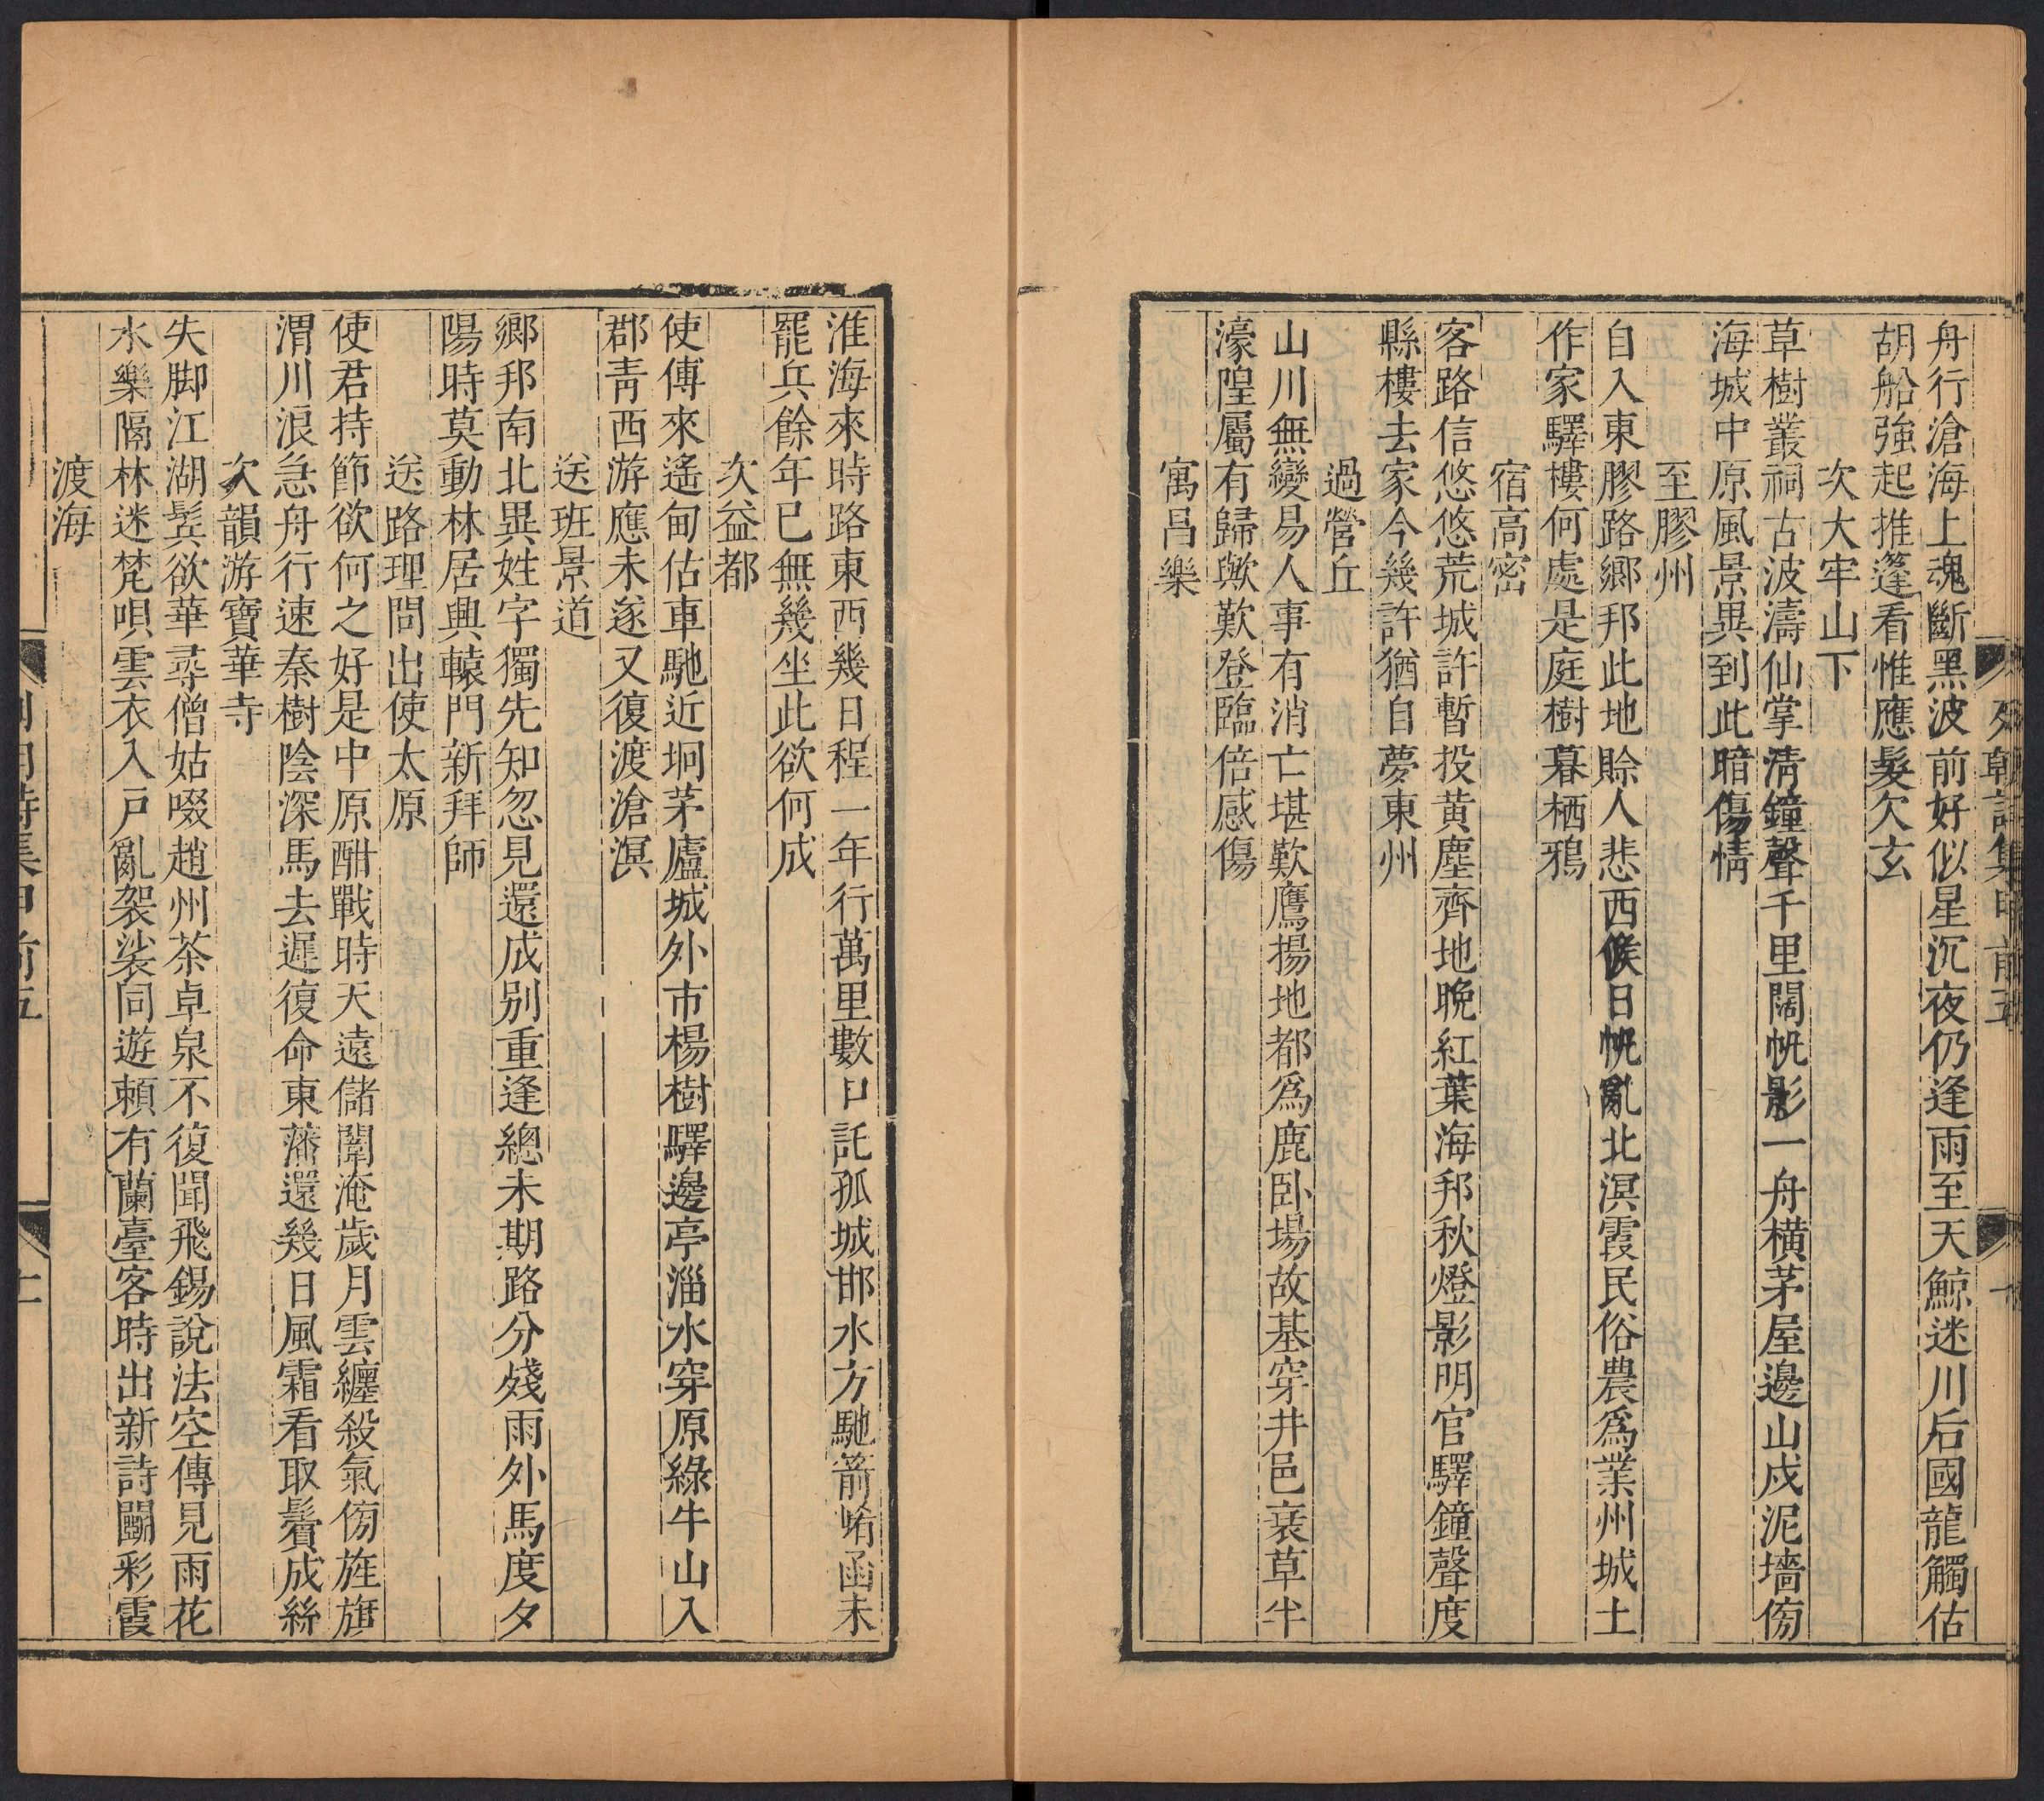 列朝詩集甲前五
舟行滄海上魂斷黑波前好似星沉夜仍逢雨至天鯨迷川后國龍觸估
胡船強起推篷看惟應髮欠玄
次大牢山下
草樹叢祠古波濤仙掌清鐘聲千里闊帆影一舟橫茅屋邊山戍泥墻傍
海城中原風景異到此暗傷情
至膠州
自入東膠路鄉邦此地賒人悲西候日帆亂北溟霞民俗農為業州城土
作家驛樓何處是庭樹暮栖鴉
宿高密
客路信悠悠荒城許暫投黃塵齊地晚紅葉海邦秋燈影明官驛鐘聲度
縣樓去家今幾許猶自夢東州
過營丘
山川無變易人事有消亡堪歎鷹揚地都為鹿臥場故基穿井邑衰草半
濠隍屬有歸歟歎登臨倍感傷
寓昌樂
淮海來時路東西幾日程一年行萬里數口託孤城邯水方馳箭崤函未
罷兵餘年已無幾坐此欲何成
次益都
使傳來遙甸估車馳近坰茅廬城外市楊樹驛邊亭淄水穿原綠牛山入
郡青西游應未遂又復渡滄溟
送班景道
鄉邦南北異姓字獨先知忽見還成別重逢總未期路分殘雨外馬度夕
陽時莫動林居興轅門新拜師
送路理問出使太原
使君持節欲何之好是中原酣戰時天遠儲闈淹歲月雲纏殺氣傍旌旗
渭川浪急舟行速秦樹陰深馬去遲復命東藩還幾日風霜看取鬢成絲
次韻游寶華寺
失脚江湖鬂欲華尋僧姑啜趙州茶卓泉不復聞飛錫說法空傳見雨花
水樂隔林迷梵唄雲衣入戶亂袈裟同遊賴有蘭臺客時出新詩鬬彩霞
渡海